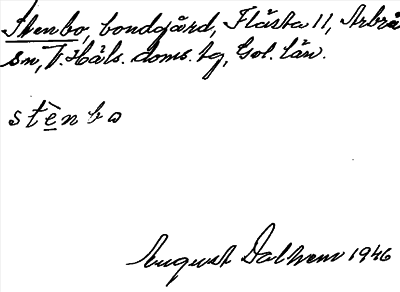 Stenbo, bondgård, Flästa 11, Arbrå
sn, V. Häls. doms. tg, Gvl. län.
stènbo
August Dalhem 1946